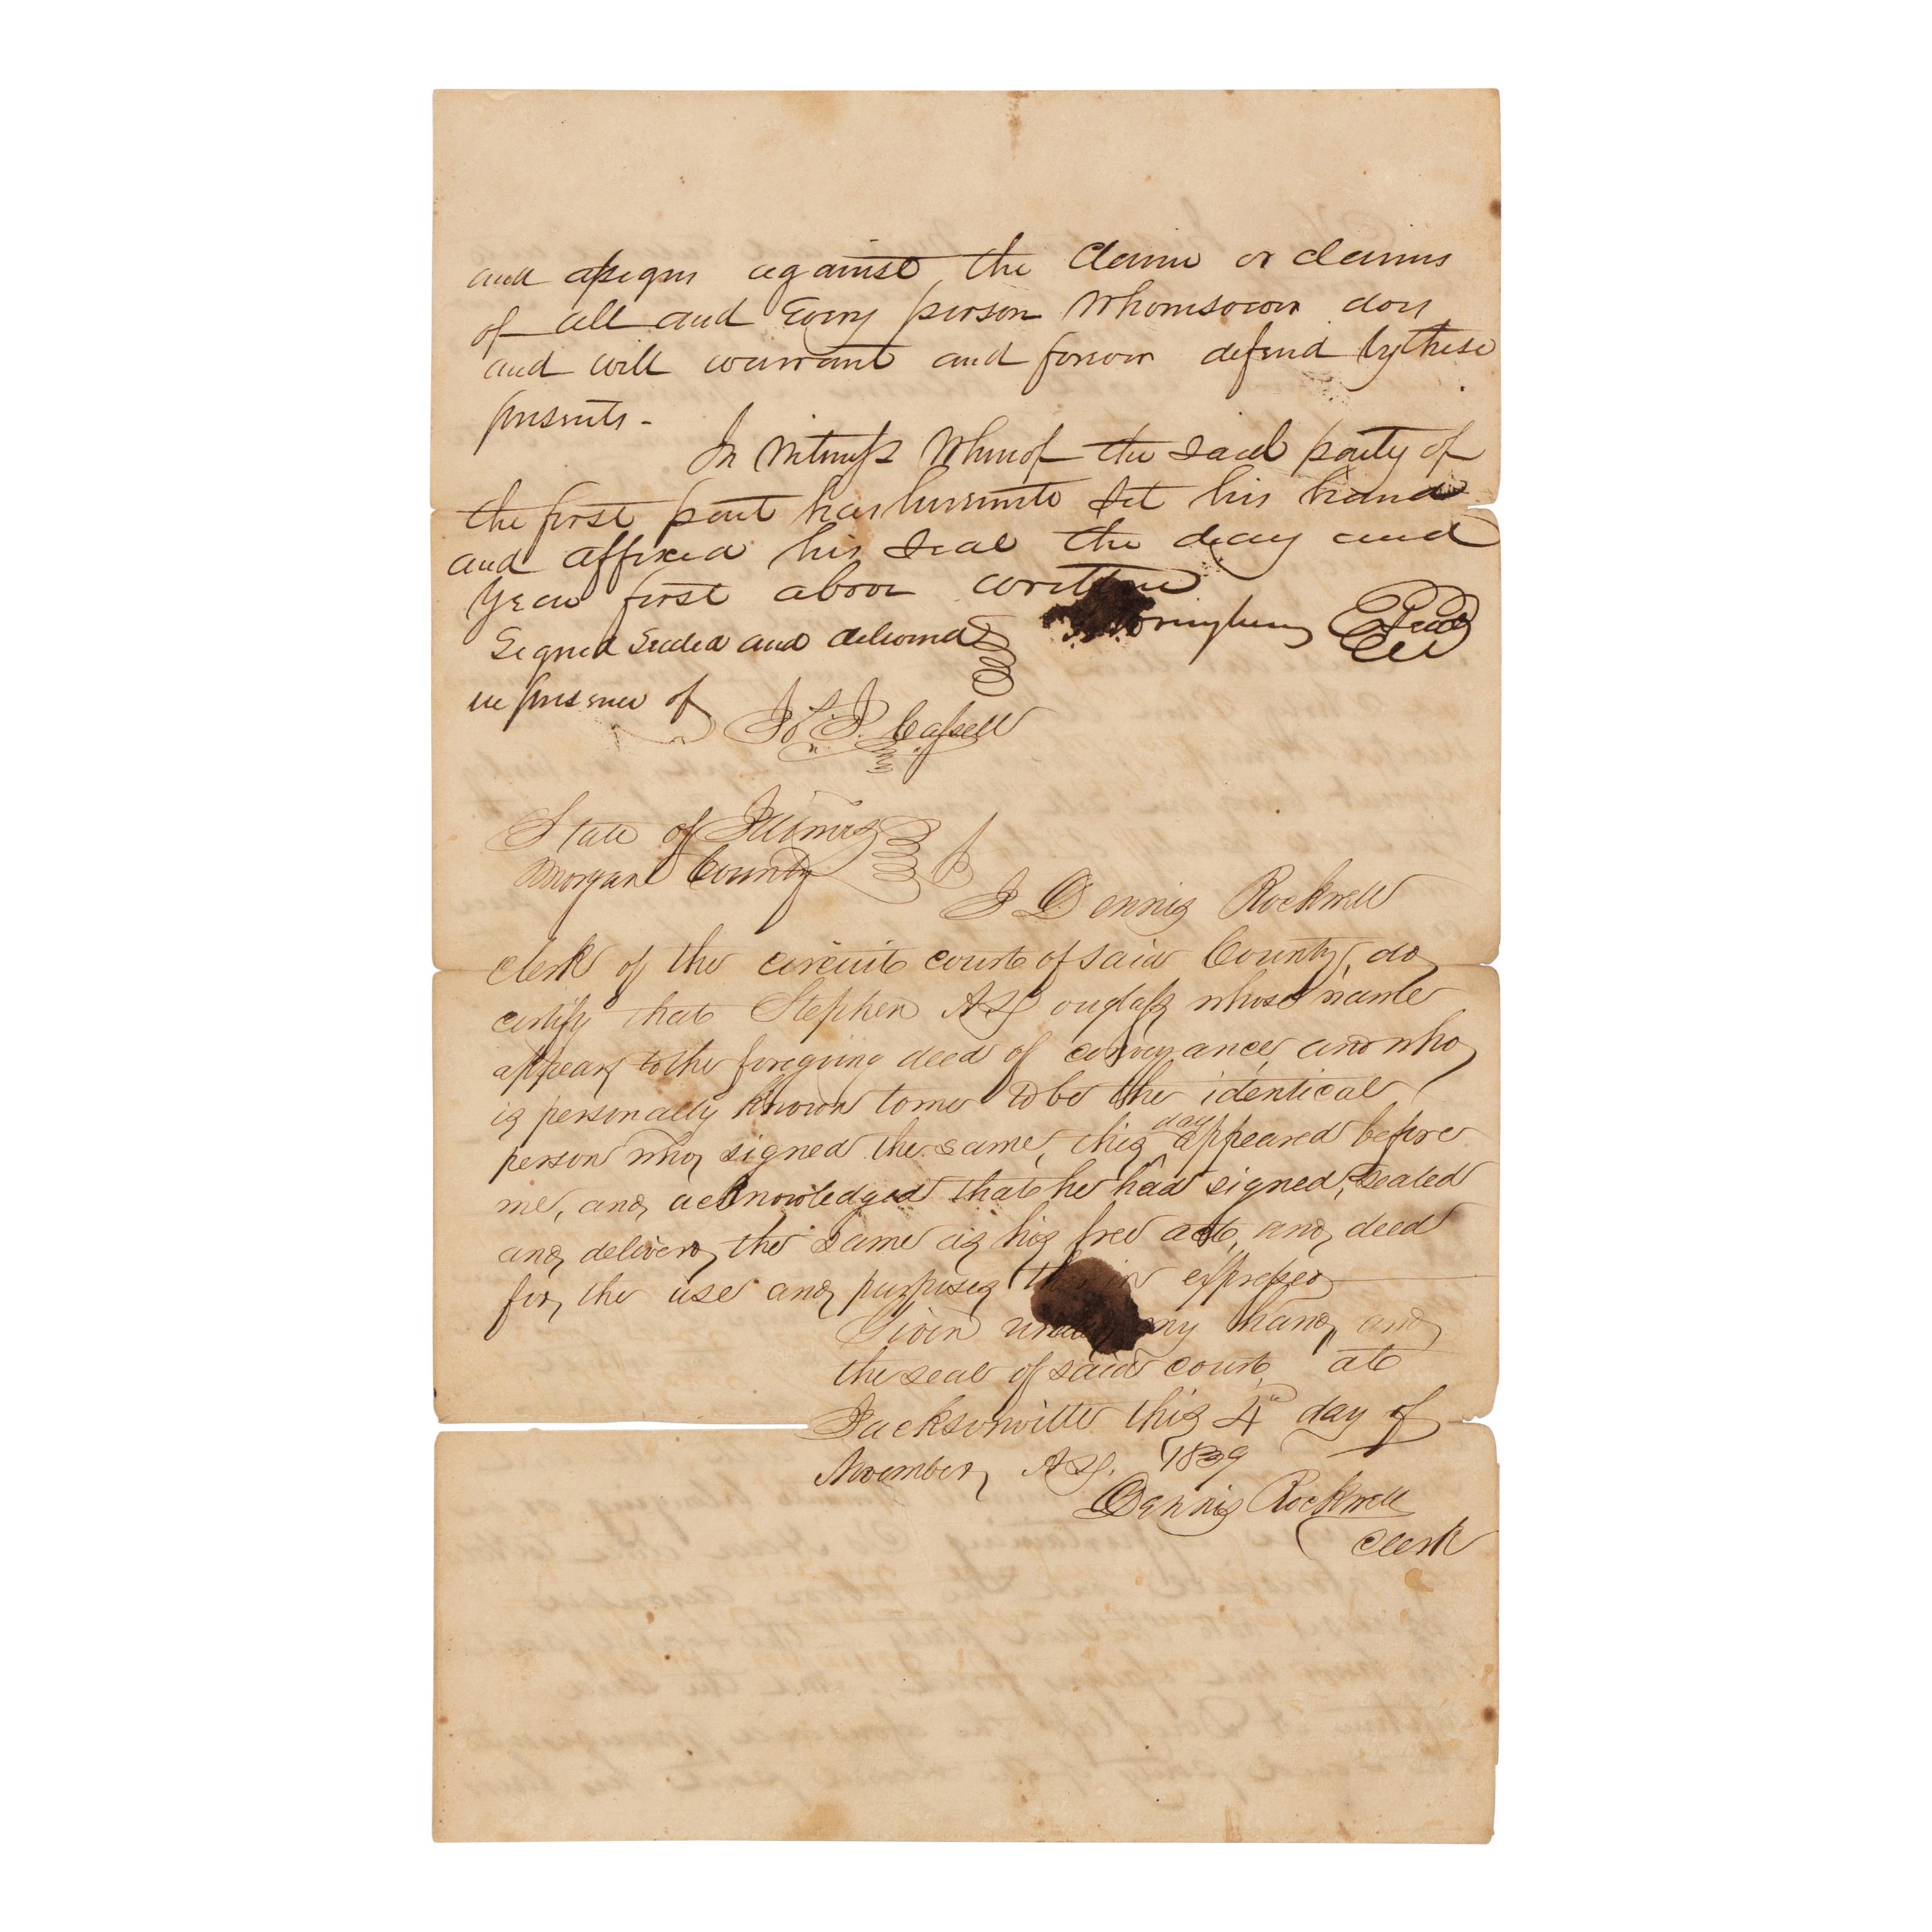 and assigns against the Claim or claims
of all and Every person Whomsoever does
and will warrant and forever defend by these
presents -
In Witness Whereof the said party of
the first part has hereunto Set his hand
and affixed his Seal the day and
Year first above written
Signed Sealed and delivered
Seal
in presence of J. Cassell
State of Illinois
Morgan County
I Dennis Rockwell
clerk of the circuit court of said County, do
certify that Stephen A D ouglass whose name
appears to the foregoing deed of conveyance, and who
is personally known to me to be the identical
person who signed the same, this day appeared before
me, and acknowledged that he had signed, sealed
and delivered the same as his free act, and deed
for the use and purposes therein expressed
Given under my hand, and
the seal of said court, at
Jacksonville this 4th day of
November A D. 1839
Dennis Rockwell
Clerk